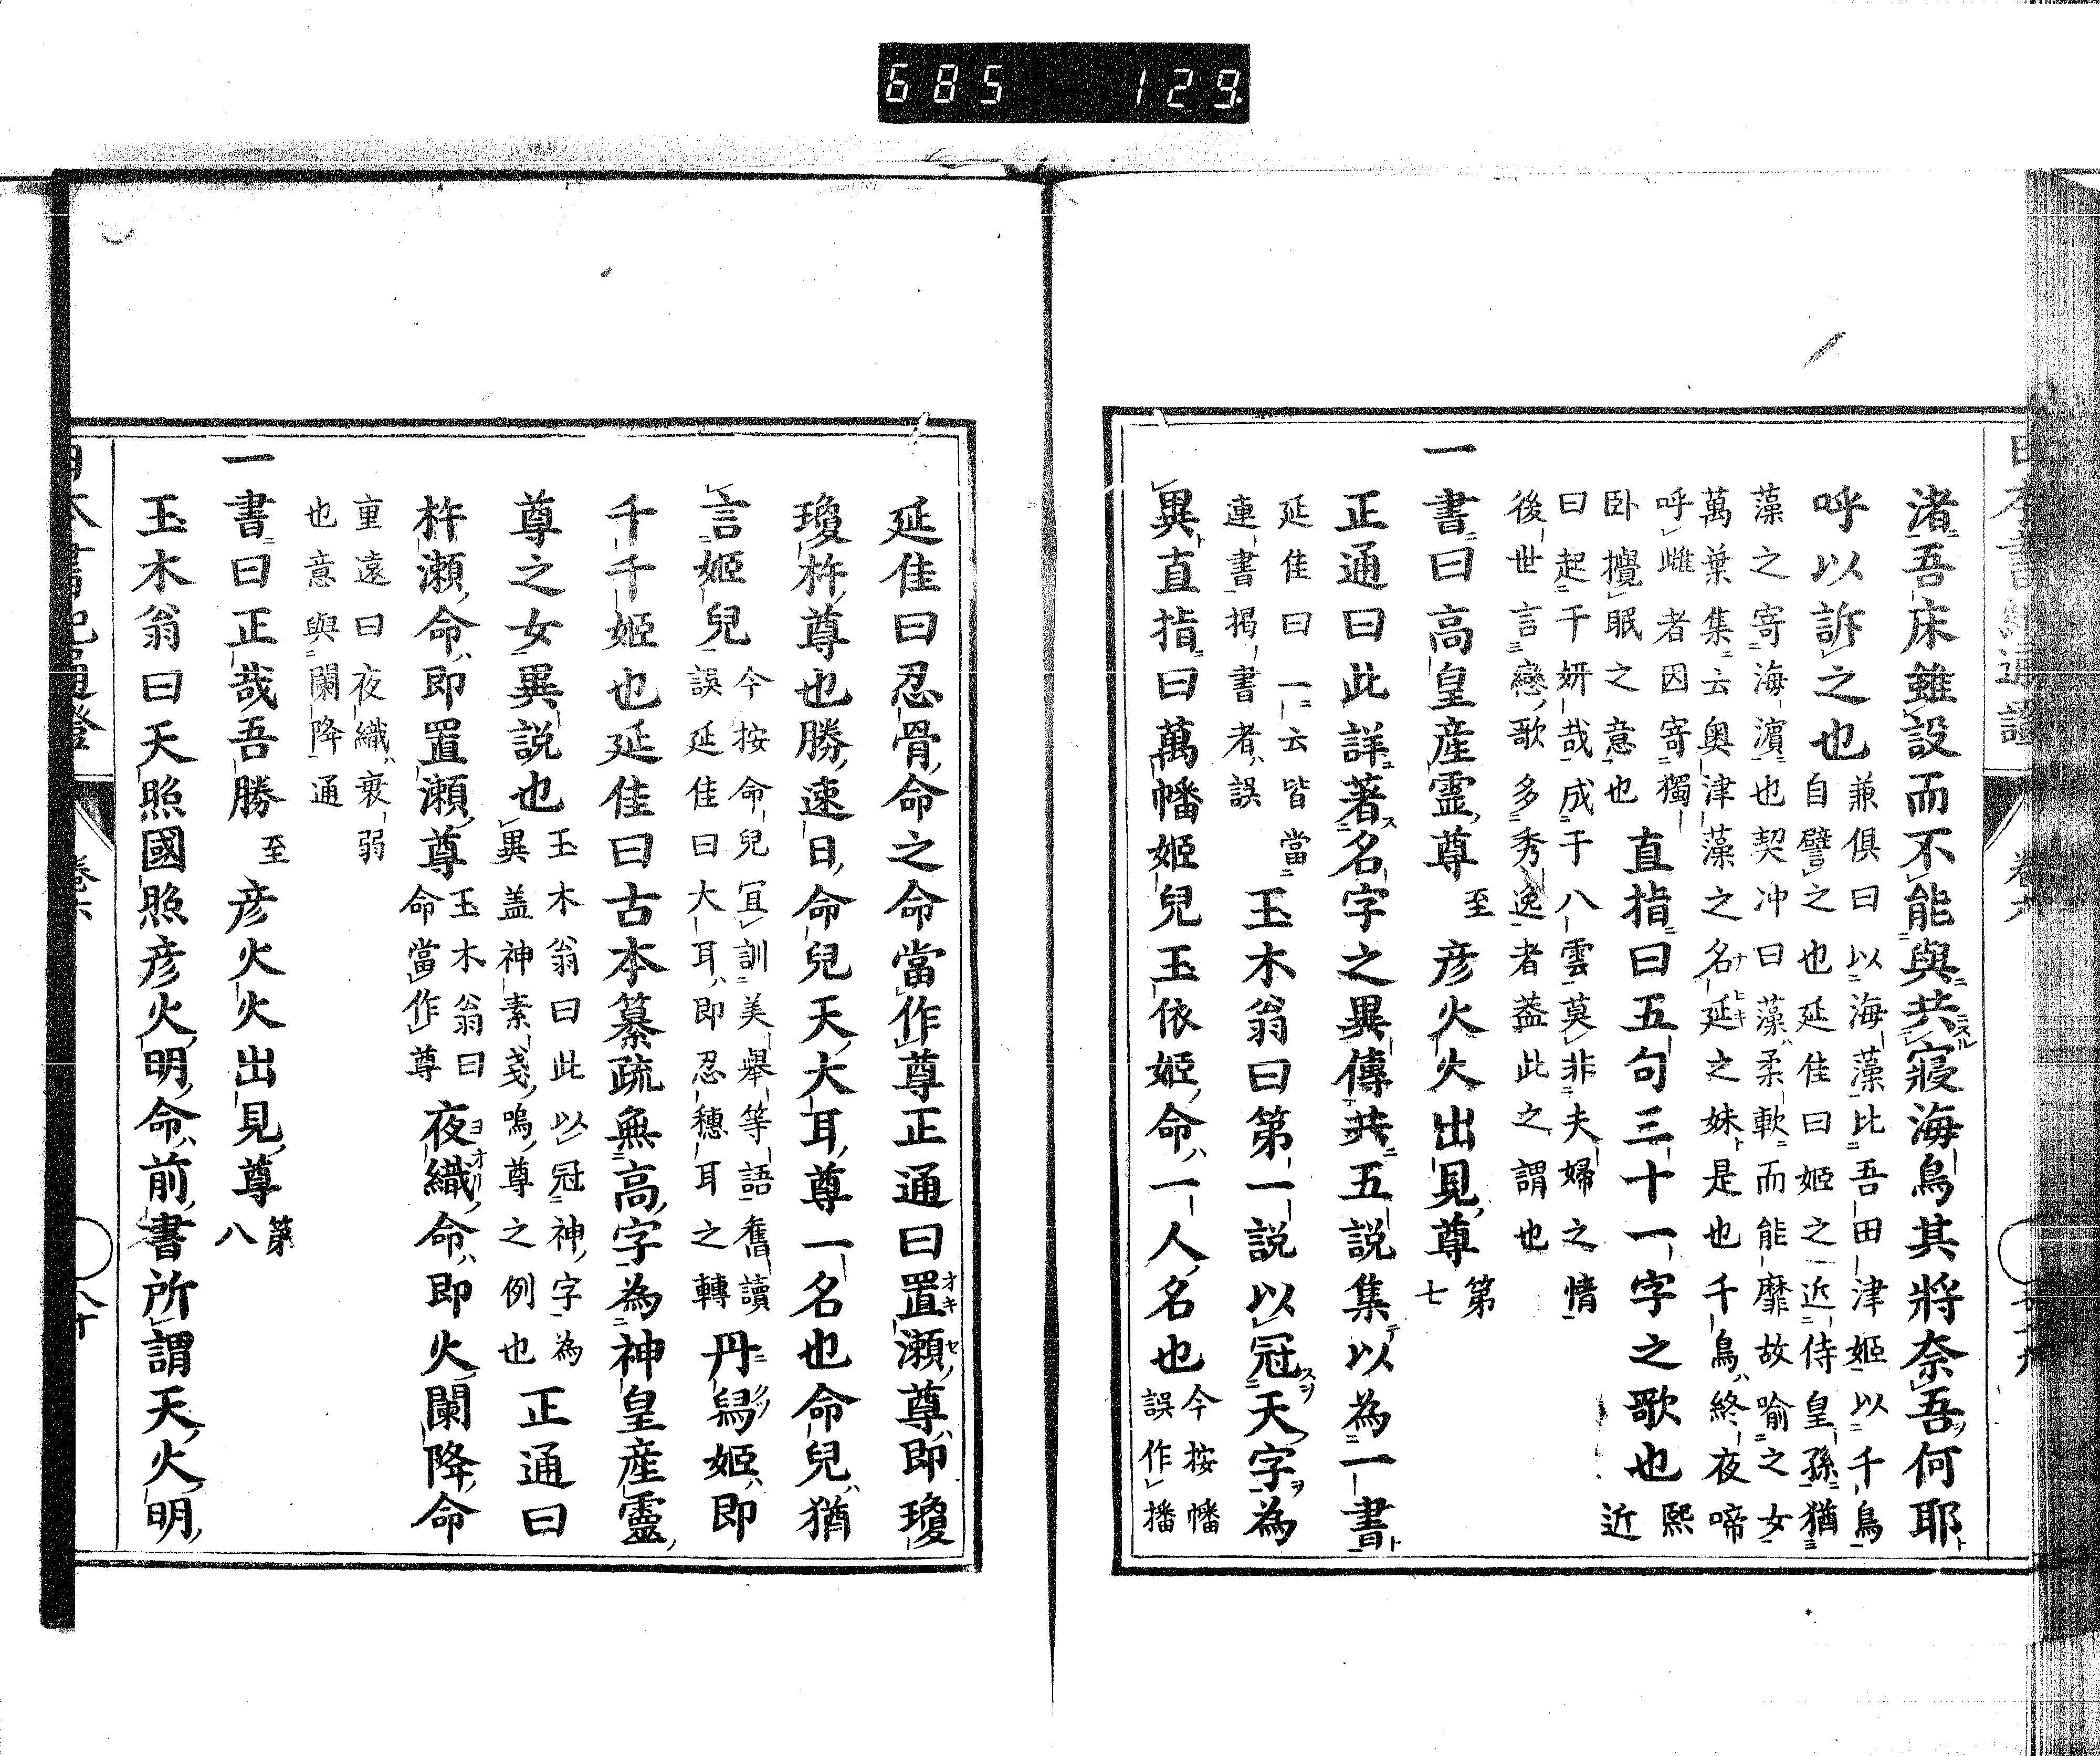 685 129
渚吾床雖設而不能與共寢海鳥其將奈吾何耶
呼以訴之也
兼俱曰以海藻比吾田津姬以千鳥
自譬之也延佳曰姬之近侍皇孫猶
藻之寄海濵也契沖曰藻柔軟而能靡故喻之女
萬葉集云奥津藻之名延之妹是也千鳥終夜啼
呼雌者因寄獨
卧攪眠之意也
直指曰五句三十一字之歌也
熙
近
曰起于妍哉成于八雲莫非夫婦之情
後世言戀歌多秀逸者蓋此之謂也
一書曰高皇産霊尊至彦火火出見尊第七
正通曰此詳著名字之異傳共五説集以為一書
延佳曰一云皆當
連書揭書者誤
玉木翁曰第一説以冠天字為
異直指曰萬幡姬兒玉依姬命一人名也
今按幡
誤作播
延佳曰忍骨命之命當作尊正通曰置瀬尊即瓊
瓊杵尊也勝速日命兒天大耳尊一名也命兒猶
言姬兒
今按命兒冝訓美舉等語舊讀
誤延佳曰大耳即忍穗耳之轉
丹舄姬即
千千姬也延佳曰古本纂疏無高字為神皇産靈
尊之女異説也
玉木翁曰此以冠神字為
異盖神素戔嗚尊之例也
正通曰
杵瀬命即置瀬尊
玉木翁曰
命當作尊
夜織命即火闌降命
重遠曰夜織衰弱
也意與闌降通
一書曰正哉吾勝至彦火火出見尊第八
玉木翁曰天照國照彦火明命前書所謂天火明